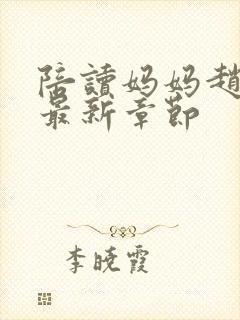 陪讀妈妈趙
最新章節
李晓霞